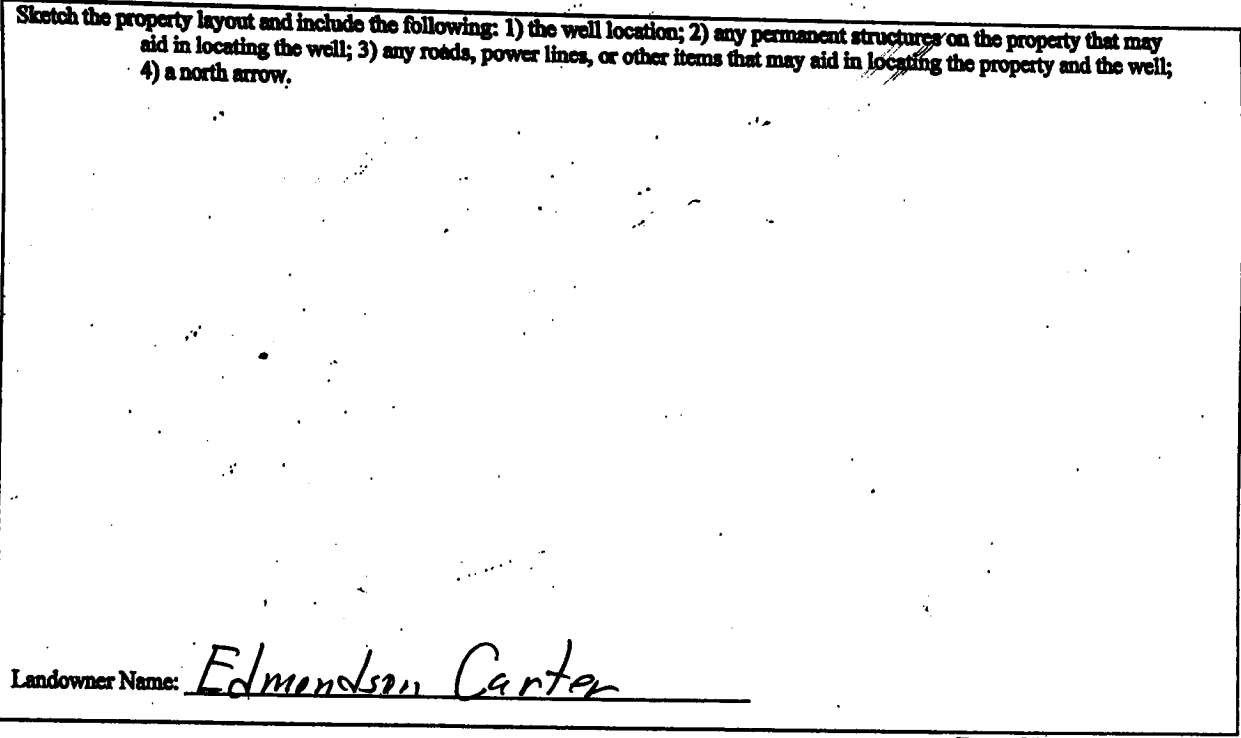 Sketch the property layout and include the following: 1) the well location; 2) any permanent structures on the property that may
aid in locating the well; 3) any roads, power lines, or other items that may aid in locating the property and the well;
4) a north arrow.
Landowner Name: Edmondson Carter